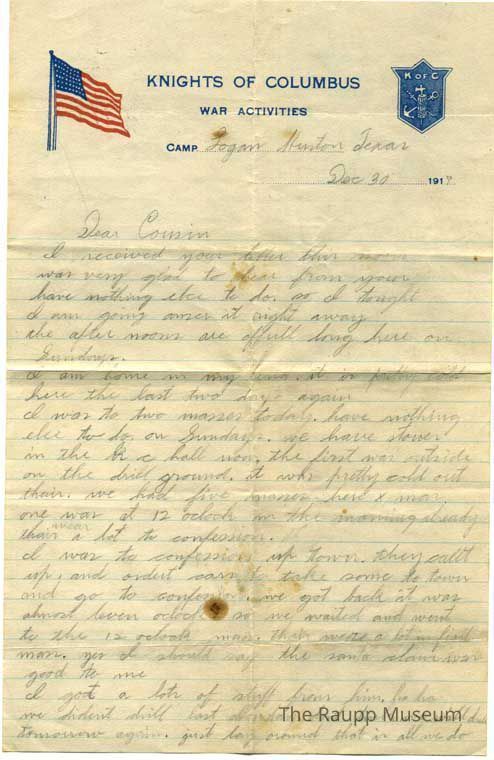 K OF C
KNIGHTS OF COLUMBUS
WAR ACTIVITIES
CAMP Logan Huston Texas
Dec 30 191
Dear Cousin
I received your letter this
was very glad to hear from you
have nothing else to do. so I tought
I am going anser it right away
the after noons are offull long here on
Sundays.
I am in my it is pretty cold
here the last two days again
I was to two masses today. have nothing
else to do. on Sunday. we have stoves
in the K C hall now. the first was outside
on the drill ground. it was pretty cold out
thair. we had five masses here x mas.
one was at 12 oclock in the morning already
thair wear a lot to confession.
I was to confession up town. they
up, and to take some to town
and go to confession. we got back it was
almost leven oclock so we waited and went
to the 12 oclock mass. their were a lot in
mass. yes I should say the santa claus was
good to me
I got a lots of stuff from him. ha ha
we dident drill last
tomorrow again. just lay around that is all we do
The Raupp Museum